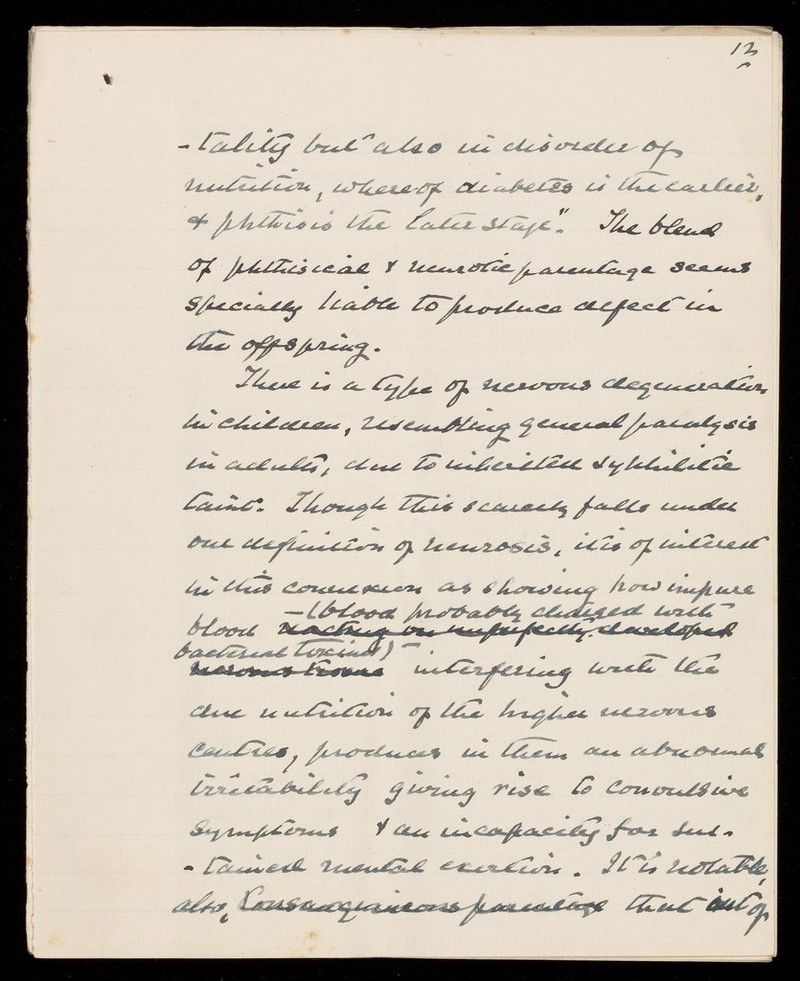 12
-tality but also in disorder of
nutrition, whereof diabetes is the earlier,
& phthisis the later stage". The blend
of phthisical & neurotic parentage seems
specially liable to produce defect in
the offspring.
There is a type of nervous degeneration
in children, resembling general paralysis
in adults, due to inherited syphilitic
taint. Though this scarcely falls under
our definition of neurosis, it is of interest
in this connexion as showing how impure
- (blood probably charged with
blood reacting on imperfectly developed
bacterial toxins) -
nervous tissue interfering with the
due nutrition of the higher nervous
centres, produces in them an abnormal
irritability giving rise to convulsive
symptoms & an incapacity for sus-
-tained mental exertion. It is notable,
also, Consanguineous parentage that out of